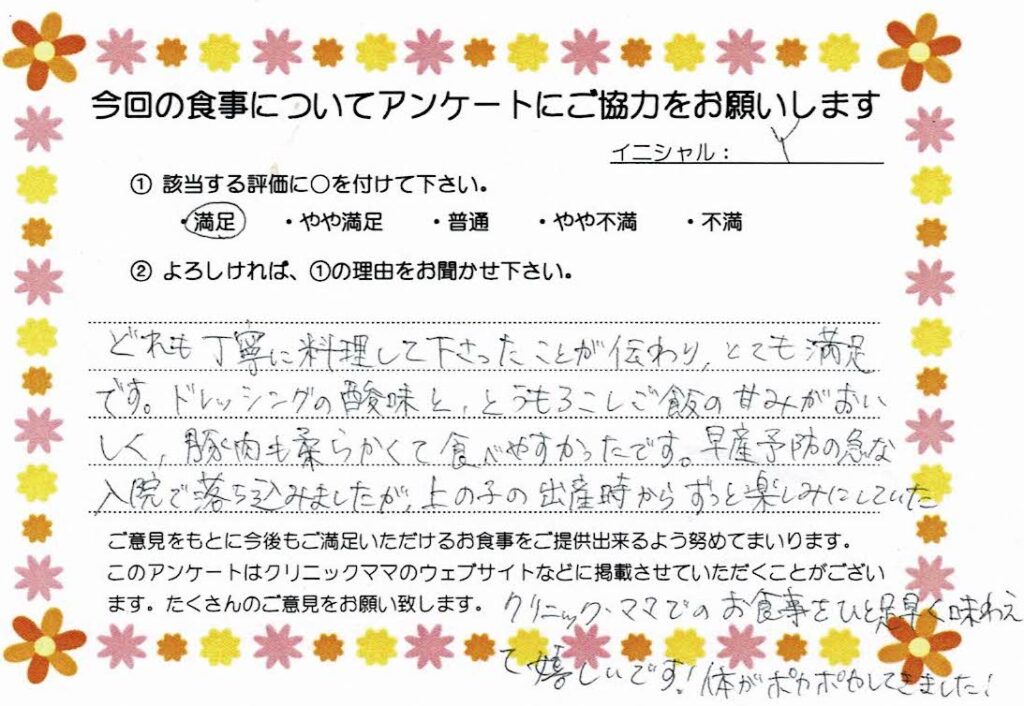 今回の食事についてアンケートにご協力をお願いします
イニシャル： Y
① 該当する評価に○を付けて下さい。
・満足 ・やや満足 ・普通 ・やや不満 ・不満
② よろしければ、①の理由をお聞かせ下さい。
どれも丁寧に料理して下さったことが伝わり、とても満足
です。ドレッシングの酸味と、とうもろこしご飯の甘みがおい
しく、豚肉も柔らかくて食べやすかったです。早産予防の急な
入院で落ち込みましたが、上の子の出産時からずっと楽しみにしていた
ご意見をもとに今後もご満足いただけるお食事をご提供出来るよう努めてまいります。
このアンケートはクリニックママのウェブサイトなどに掲載させていただくことがござい
ます。たくさんのご意見をお願い致します。
クリニック・ママでのお食事をひと足早く味わえ
て嬉しいです！体がポカポカしてきました！